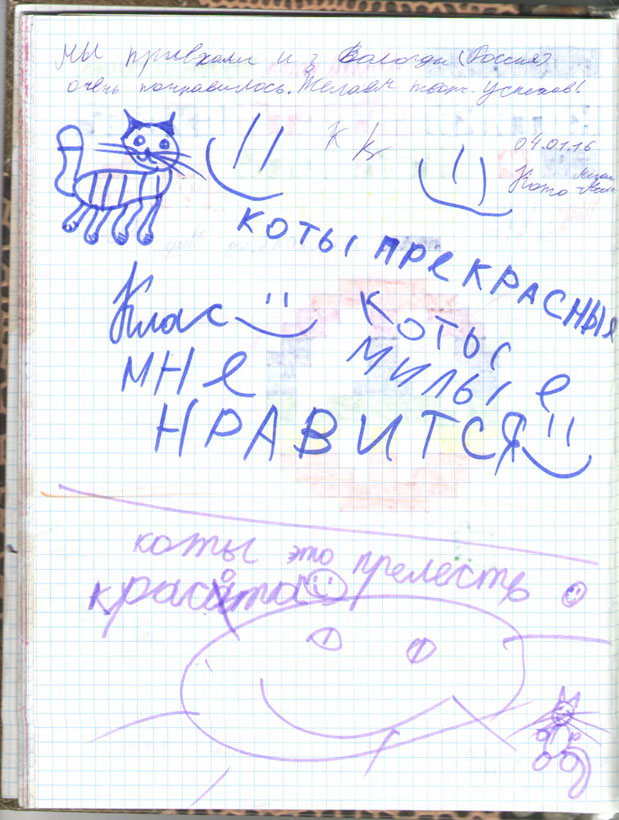 мы приехали из Вологды (Россия)
очень понравилось. Желаем твор. успехов!
К К
04.01.16
коты прекрасные
Клас
коты
милые
мне
нравится
коты это прелесть
красота